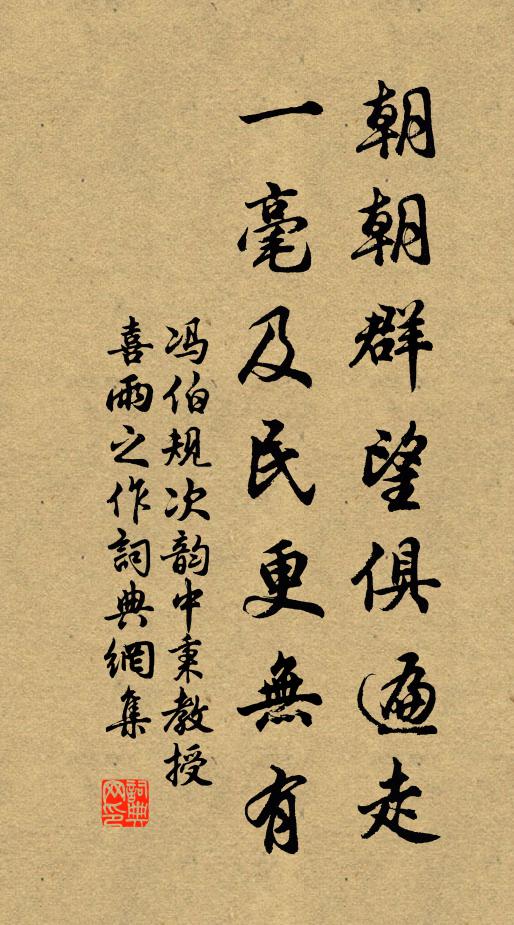 朝朝群望俱遍走
一毫及民更無有
冯伯规次韵中秉教授
喜雨之作詞典網集
詞典
网印